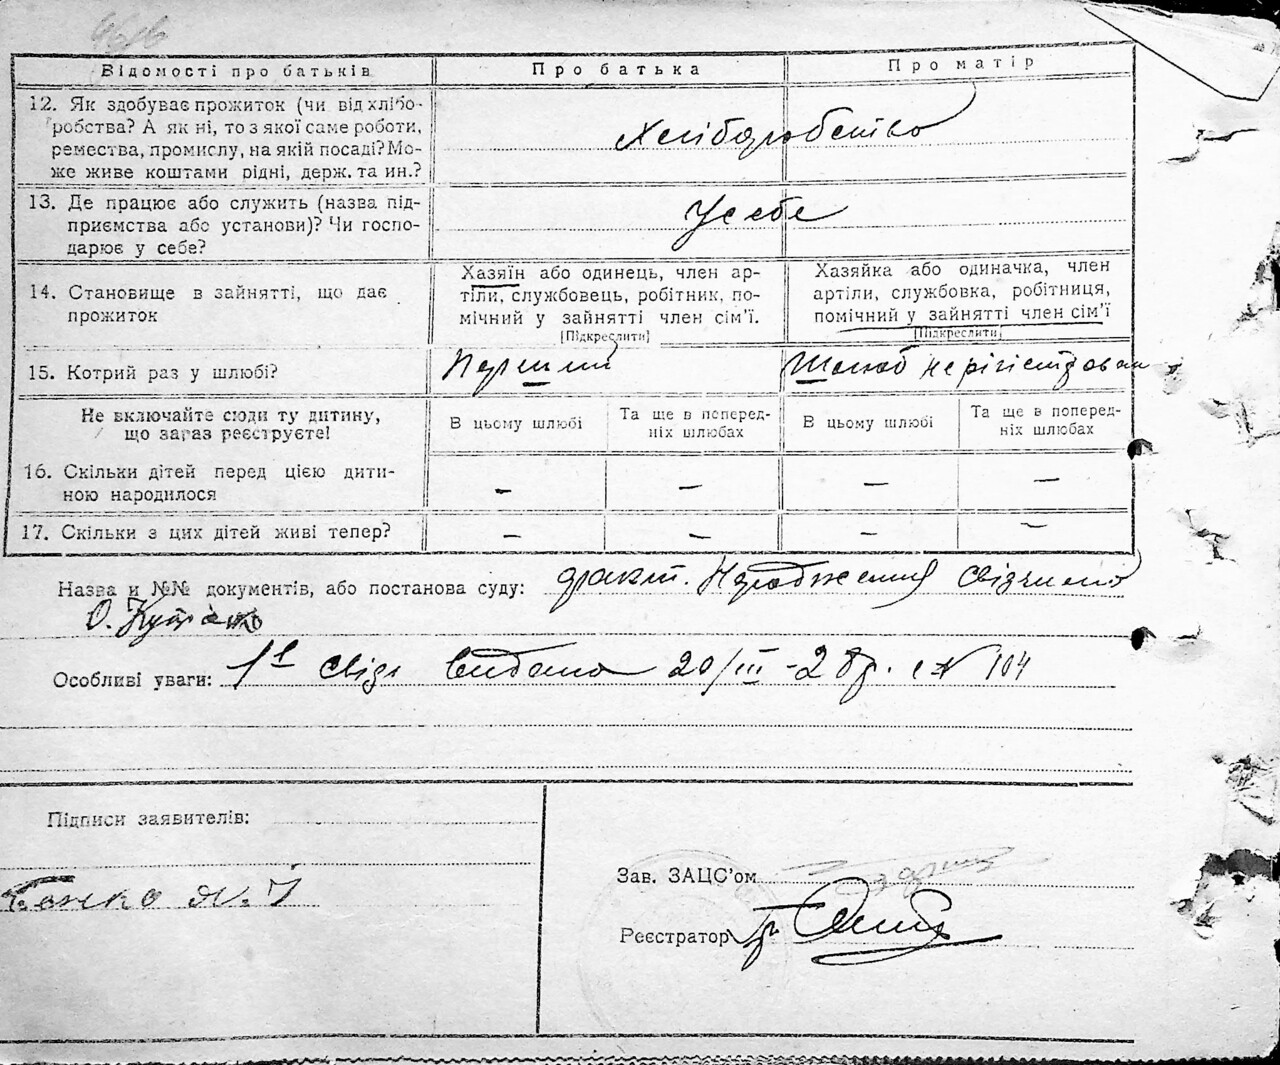 Відомості про батьків
Про батька
Про матір
12. Як здобуває прожиток (чи від хлібо-
робства? А як ні, то з якої саме роботи,
ремества, промислу, на якій посаді? Мо-
же живе коштами рідні, держ. та ин.?
Хліборобство
13. Де працює або служить (назва під-
приємства або установи)? Чи госпо-
дарює у себе?
У себе
14. Становище в зайнятті, що дає
прожиток
Хазяїн або одинець, член ар-
тіли, службовець, робітник, по-
мічний у зайнятті член сім'ї.
[Підкреслити]
Хазяйка або одиначка, член
артіли, службовка, робітниця,
помічний у зайнятті член сім'ї
[Підкреслити]
15. Котрий раз у шлюбі?
Перший
Шлюб не рігістрован
Не включайте сюди ту дитину,
що зараз реєструєте!
В цьому шлюбі
Та ще в поперед-
ніх шлюбах
В цьому шлюбі
Та ще в поперед-
ніх шлюбах
16. Скільки дітей перед цією дити-
ною народилося
– – – –
17. Скільки з цих дітей живі тепер?
– – – –
Назва и №№ документів, або постанова суду: факт. Народження
О.
Особливі уваги: свід видано 20/III-28р. с № 104
Підписи заявителів:
Зав. ЗАЦС'ом
Реєстратор